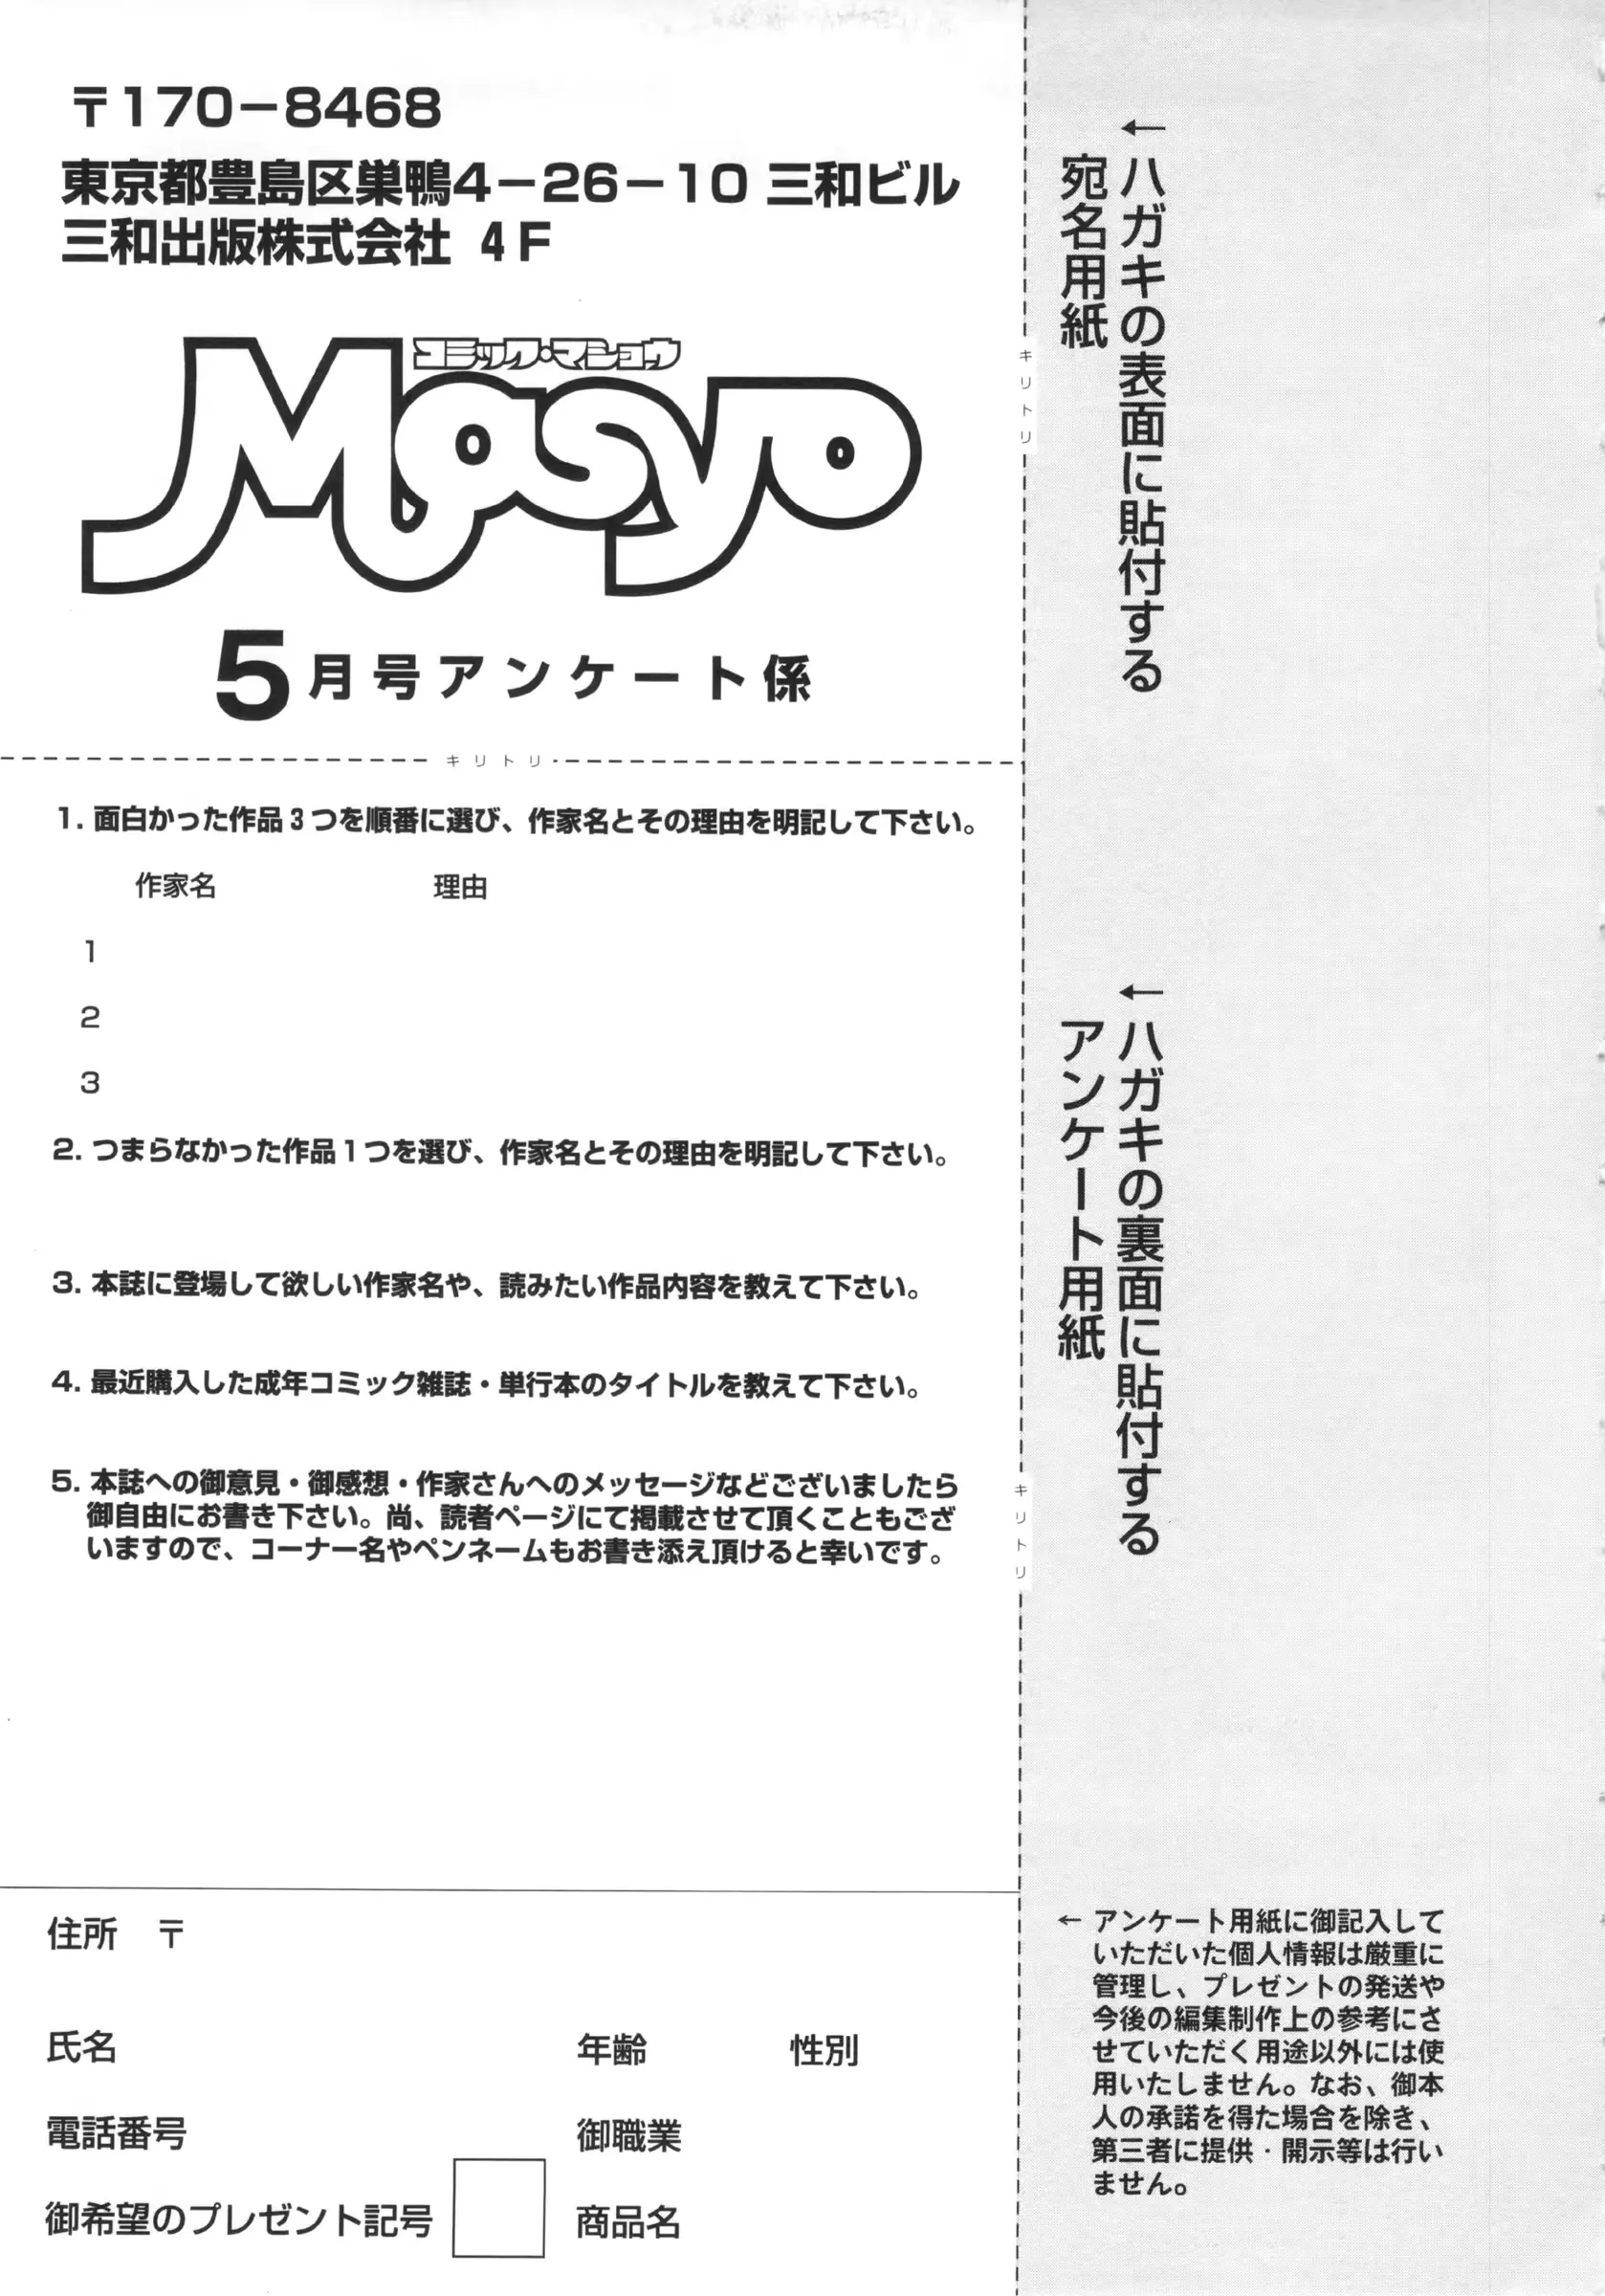 〒170−8468
東京都豊島区巣鴨4−26−10 三和ビル
三和出版株式会社 4F
コミック・マショウ
Masyo
5月号アンケート係
キリトリ
1. 面白かった作品3つを順番に選び、作家名とその理由を明記して下さい。
作家名 理由
1
2
3
2. つまらなかった作品1つを選び、作家名とその理由を明記して下さい。
3. 本誌に登場して欲しい作家名や、読みたい作品内容を教えて下さい。
4. 最近購入した成年コミック雑誌・単行本のタイトルを教えて下さい。
5. 本誌への御意見・御感想・作家さんへのメッセージなどございましたら
御自由にお書き下さい。尚、読者ページにて掲載させて頂くこともござ
いますので、コーナー名やペンネームもお書き添え頂けると幸いです。
住所 〒
氏名 年齢 性別
電話番号 御職業
御希望のプレゼント記号 商品名
キリトリ
←ハガキの表面に貼付する
宛名用紙
キリトリ
←ハガキの裏面に貼付する
アンケート用紙
← アンケート用紙に御記入して
いただいた個人情報は厳重に
管理し、プレゼントの発送や
今後の編集制作上の参考にさ
せていただく用途以外には使
用いたしません。なお、御本
人の承諾を得た場合を除き、
第三者に提供・開示等は行い
ません。